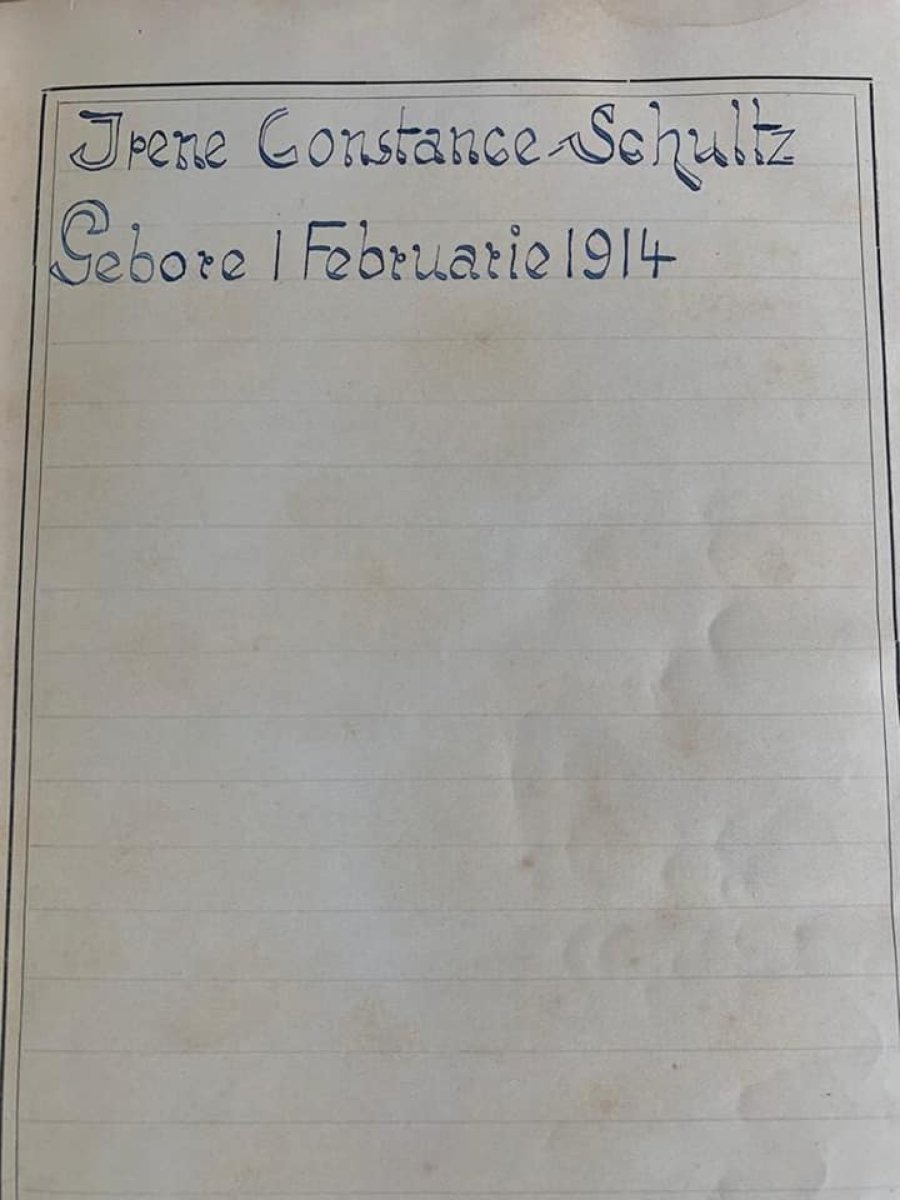 Irene Constance Schultz
Gebore 1 Februarie 1914